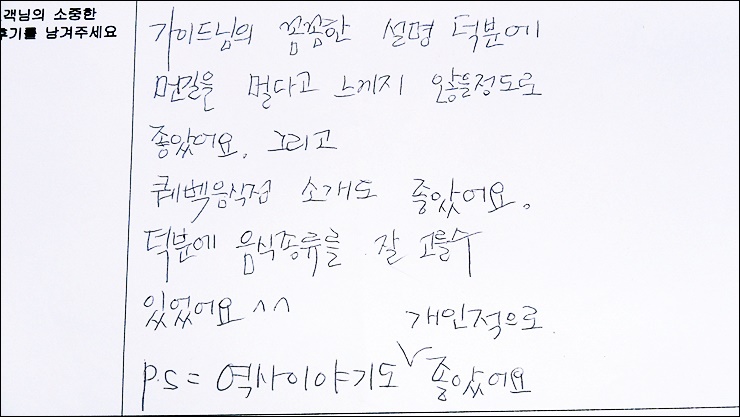 고객님의 소중한
후기를 남겨주세요
가이드님의 꼼꼼한 설명 덕분에
먼길을 멀다고 느끼지 않을정도로
좋았어요. 그리고
퀘벡음식점 소개도 좋았어요.
덕분에 음식종류를 잘 고를수
있었어요 ^^
P.S = 역사이야기도 ∨개인적으로 좋았어요